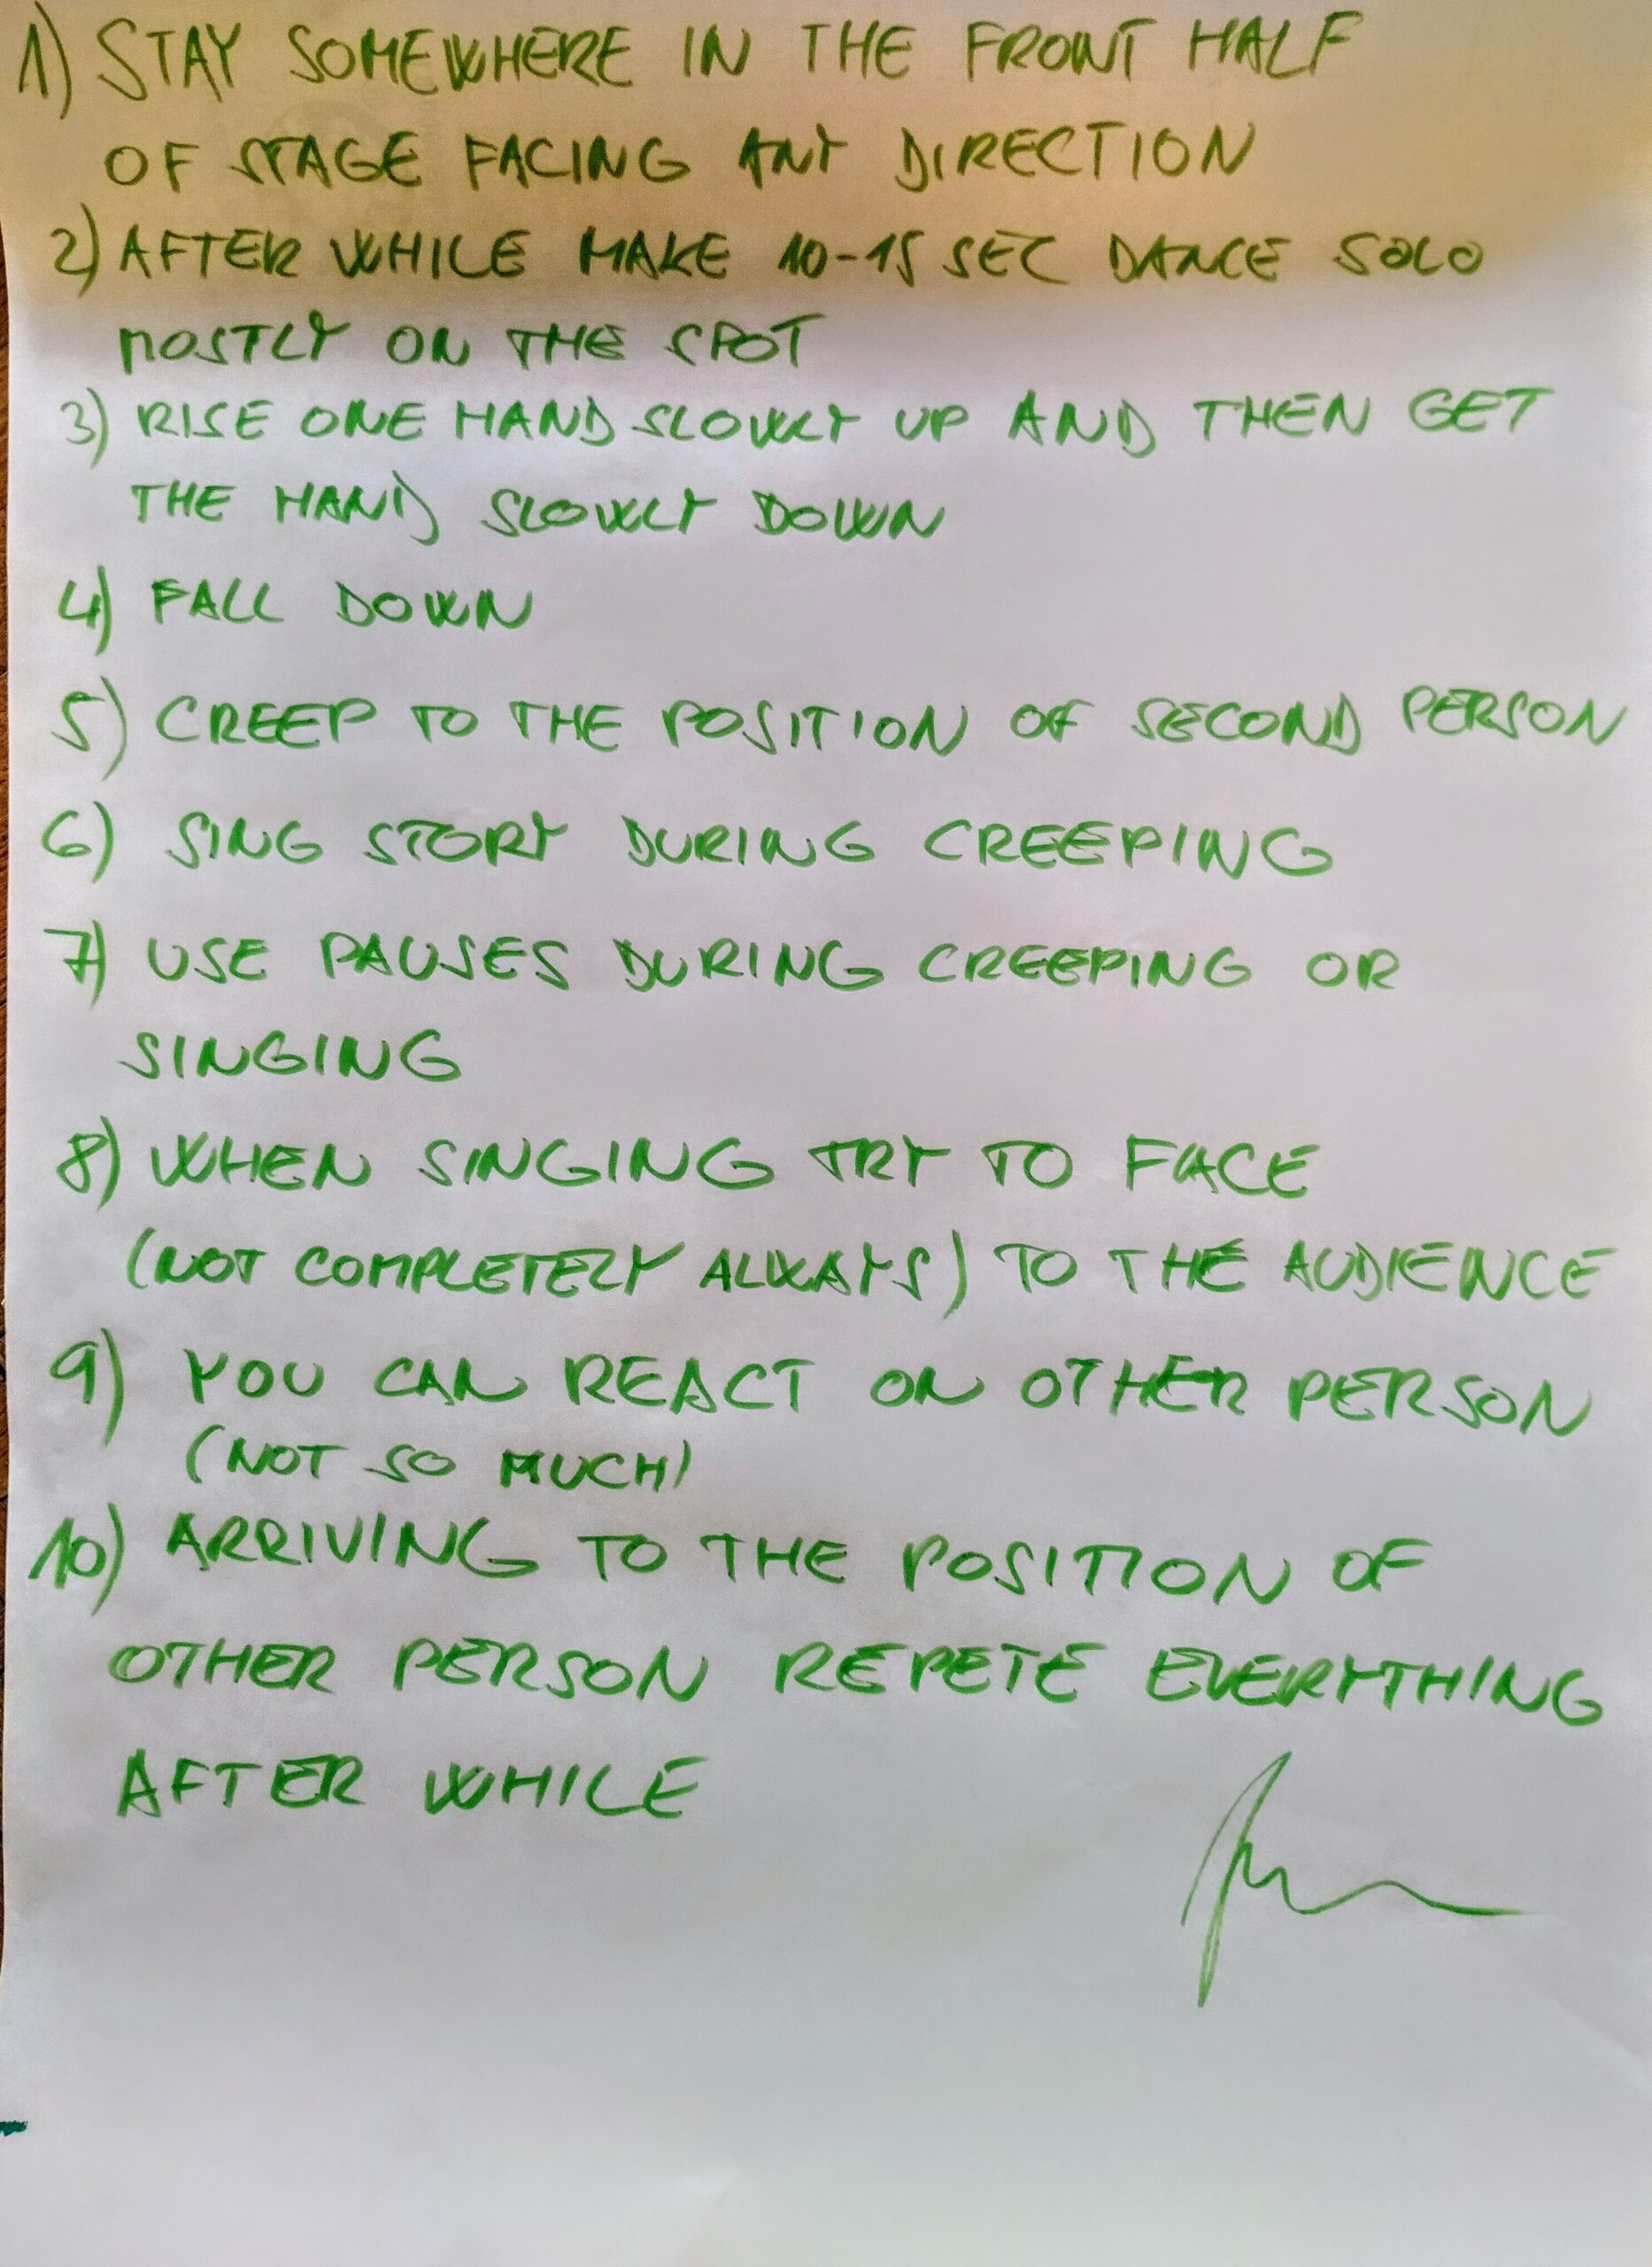 1) STAY SOMEWHERE IN THE FRONT HALF
OF STAGE FACING ANY DIRECTION
2) AFTER WHILE MAKE 10-15 SEC DANCE SOLO
MOSTLY ON THE SPOT
3) RISE ONE HAND SLOWLY UP AND THEN GET
THE HAND SLOWLY DOWN
4) FALL DOWN
5) CREEP TO THE POSITION OF SECOND PERSON
6) SING STORY DURING CREEPING
7) USE PAUSES DURING CREEPING OR
SINGING
8) WHEN SINGING TRY TO FACE
(NOT COMPLETELY ALWAYS) TO THE AUDIENCE
9) YOU CAN REACT ON OTHER PERSON
(NOT SO MUCH)
10) ARRIVING TO THE POSITION OF
OTHER PERSON REPETE EVERYTHING
AFTER WHILE